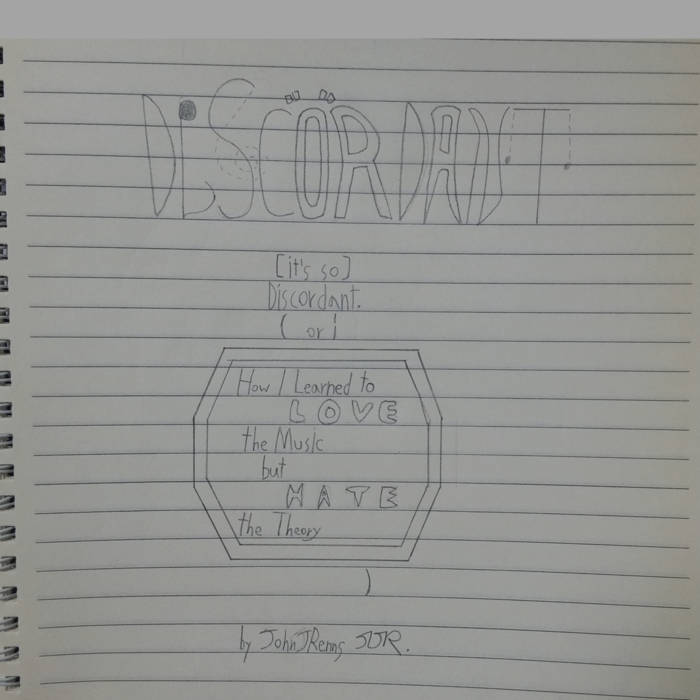 DiSCÖRDANT
[it's so]
Discordant.
( or¡
How I Learned to
LOVE
the Music
but
HATE
the Theory
)
by JohnJRenns JJR.